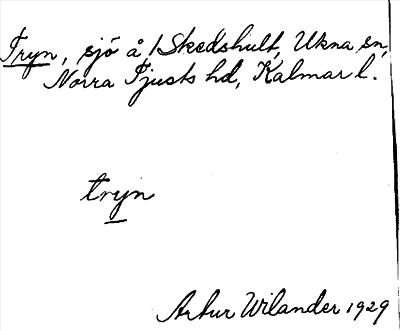 Tryn, sjö å 1 Skedshult, Ukna sn,
Norra Tjusts hd, Kalmar l.
tryn
Artur Wilander 1929